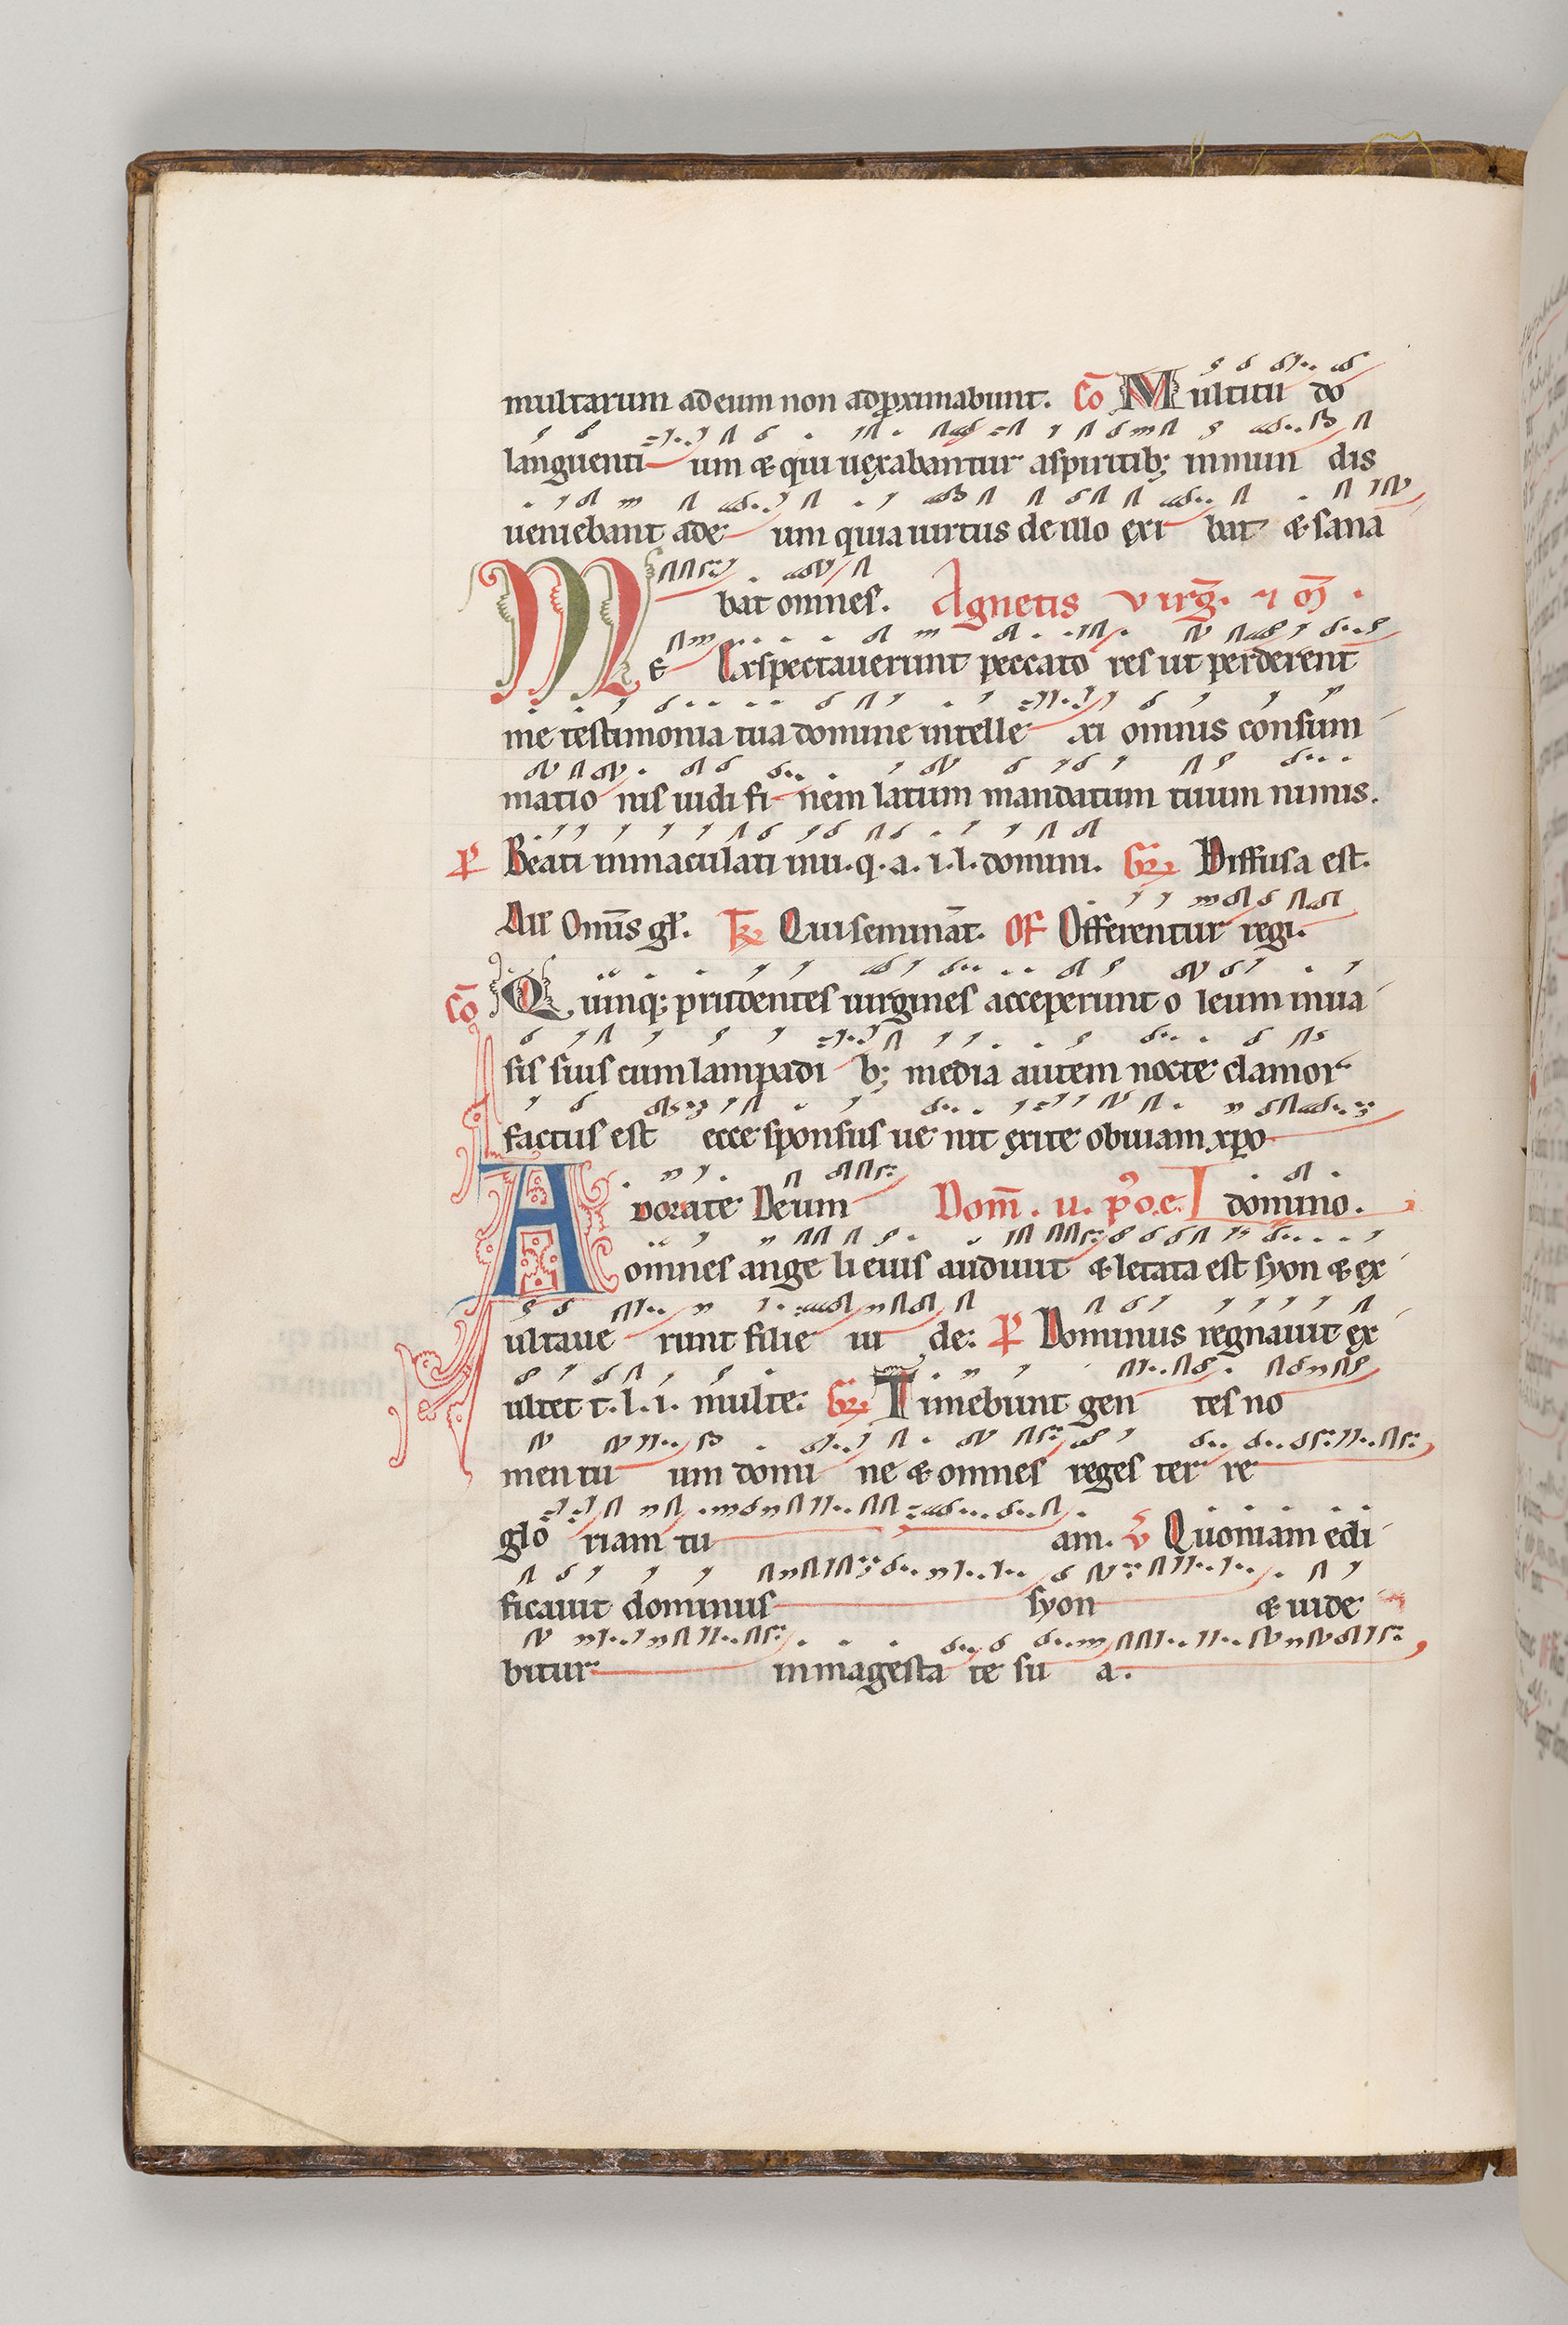 multarum ad eum non adproximabunt. Cō Multitu do
languenti um & qui uexabantur aspiritib; inmun dis
ueniebant ade um quia uirtus de illo exi bat & sana
bat omnes. Agnetis virḡ. ⁊ m̄.
Me Exspectauerunt peccato res ut perderent
me testimonia tua domine intelle xi omnis consum
matio nis uidi fi nem latum mandatum tuum nimis.
P̄ Beati inmaculati inu. q. a. i. l. domini. Gr̄ Diffusa est.
All Om̄s gl̄. Tr̄ Qui semināt. OF Offerentur regi.
Cō Quinq; prudentes uirgines acceperunt o leum in ua
sis suis cum lampadi b; media autem nocte clamor
factus est ecce sponsus ue nit exite obuiam xpo
domino.
Adorate Deum Dom̄. u. p⁹ o. e.
omnes ange li eius audiuit & letata est syon & ex
ultaue runt filie iu de: P̄ Dominus regnauit ex
ultet t. l. i. multe: Gr̄ Timebunt gen tes no
men tu um domi ne & omnes reges ter re
glo riam tu am. v̄ Quoniam edi
ficauit dominus syon & uide
bitur in magesta te su a.